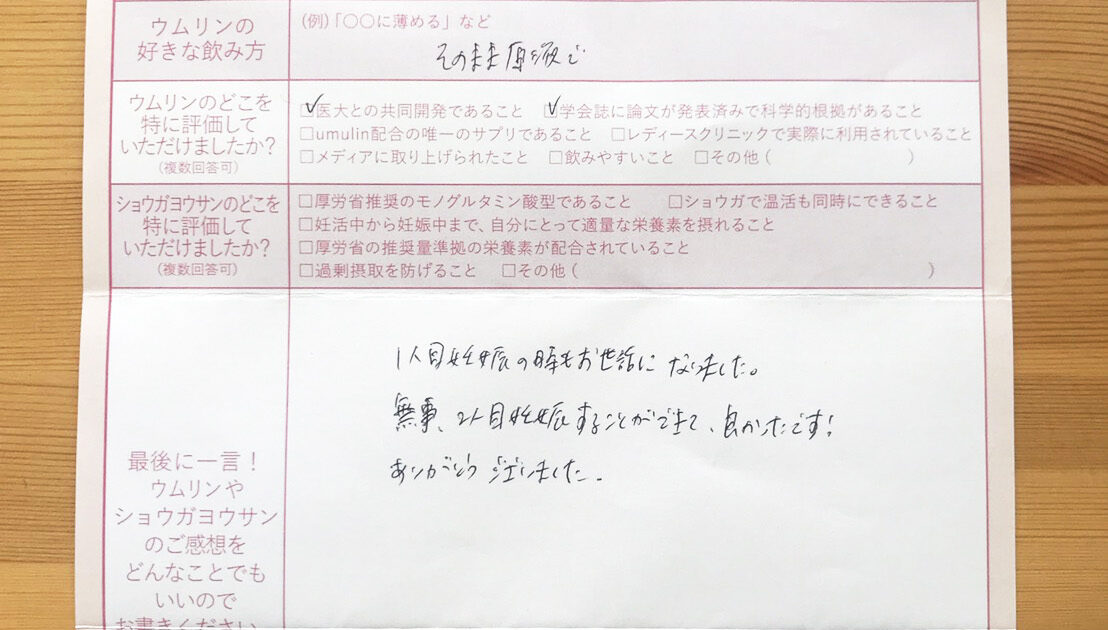 ウムリンの
好きな飲み方
(例)「〇〇に薄める」など
そのまま原液で
ウムリンのどこを
特に評価して
いただけましたか?
(複数回答可)
☑医大との共同開発であること ☑学会誌に論文が発表済みで科学的根拠があること
□umulin配合の唯一のサプリであること □レディースクリニックで実際に利用されていること
□メディアに取り上げられたこと □飲みやすいこと □その他( )
ショウガヨウサンのどこを
特に評価して
いただけましたか?
(複数回答可)
□厚労省推奨のモノグルタミン酸型であること □ショウガで温活も同時にできること
□妊活中から妊娠中まで、自分にとって適量な栄養素を摂れること
□厚労省の推奨量準拠の栄養素が配合されていること
□過剰摂取を防げること □その他( )
最後に一言!
ウムリンや
ショウガヨウサン
のご感想を
どんなことでも
いいので
お書きください
1人目妊娠の時もお世話になりました。
無事、2人目妊娠することができて、良かったです!
ありがとうございました.